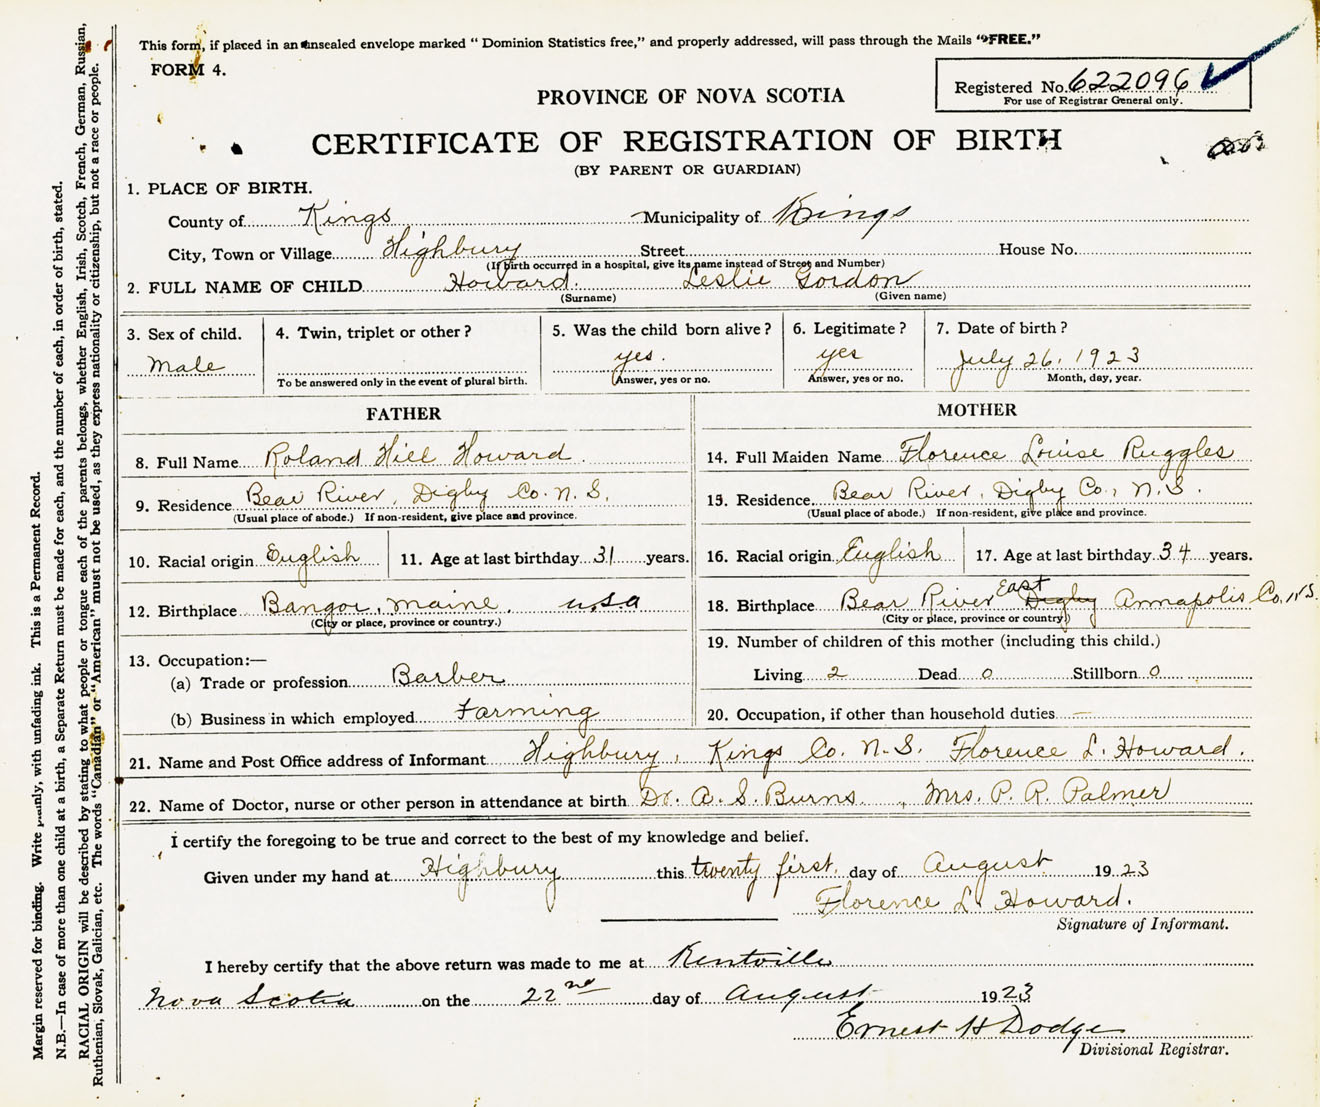 This form, if placed in an unsealed envelope marked " Dominion Statistics free," and properly addressed, will pass through the Mails "FREE."
FORM 4.
Registered No. 622096
For use of Registrar General only.
PROVINCE OF NOVA SCOTIA
CERTIFICATE OF REGISTRATION OF BIRTH
(BY PARENT OR GUARDIAN)
1. PLACE OF BIRTH.
County of Kings Municipality of Kings
City, Town or Village Highbury Street House No.
(If birth occurred in a hospital, give its name instead of Street and Number)
2. FULL NAME OF CHILD Howard. Leslie Gordon
(Surname) (Given name)
3. Sex of child. 4. Twin, triplet or other? 5. Was the child born alive? 6. Legitimate? 7. Date of birth?
Male yes. yes July 26, 1923
To be answered only in the event of plural birth. Answer, yes or no. Answer, yes or no. Month, day, year.
FATHER
8. Full Name Roland Hill Howard.
9. Residence Bear River, Digby Co. N. S.
(Usual place of abode.) If non-resident, give place and province.
10. Racial origin English 11. Age at last birthday 31 years.
12. Birthplace Bangor, Maine. U.S.A
(City or place, province or country.)
13. Occupation:—
(a) Trade or profession Barber
(b) Business in which employed Farming
MOTHER
14. Full Maiden Name Florence Louise Ruggles
15. Residence Bear River, Digby Co., N.S.
(Usual place of abode.) If non-resident, give place and province.
16. Racial origin English 17. Age at last birthday 34 years.
18. Birthplace Bear River East Digby Annapolis Co. N.S.
(City or place, province or country)
19. Number of children of this mother (including this child.)
Living 2 Dead 0 Stillborn 0
20. Occupation, if other than household duties —
21. Name and Post Office address of Informant Highbury, Kings Co. N. S. Florence L. Howard.
22. Name of Doctor, nurse or other person in attendance at birth Dr. A. S. Burns, Mrs. P. R. Palmer
I certify the foregoing to be true and correct to the best of my knowledge and belief.
Given under my hand at Highbury this twenty first. day of August 1923
Florence L. Howard.
Signature of Informant.
I hereby certify that the above return was made to me at Kentville
Nova Scotia on the 22nd day of August 1923
Ernest H Dodge
Divisional Registrar.
Margin reserved for binding. Write plainly, with unfading ink. This is a Permanent Record.
N.B.—In case of more than one child at a birth, a Separate Return must be made for each, and the number of each, in order of birth, stated.
RACIAL ORIGIN will be described by stating to what people or tongue each of the parents belongs, whether English, Irish, Scotch, French, German, Russian,
Ruthenian, Slovak, Galician, etc. The words "Canadian" or "American" must not be used, as they express nationality or citizenship, but not a race or people.